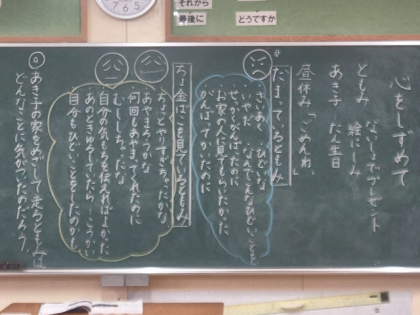 それから
最後に
どうですか
心をこめて
ともみ ないしょでプレゼント
絵にしみ
あき子 たん生日
昼休み「ごめんね。」
だまっているともみ
さいあく ひどいな
いやだ なんでこんなひどいことを
せっかくがんばったのに
お家の人に見てもらいたかった
がんばってかいたのに
ちょ金ばこを見ているともみ
ちょっとやりすぎちゃったかな
あやまろうかな
何回もあやまってくれたのに
むししちゃったな
自分の気もちを伝えればよかった
あのときゆるしていたら…
自分もひどいことをしたのかも
あき子の家をめざして走るともみは
どんなことに気がついたのだろう。